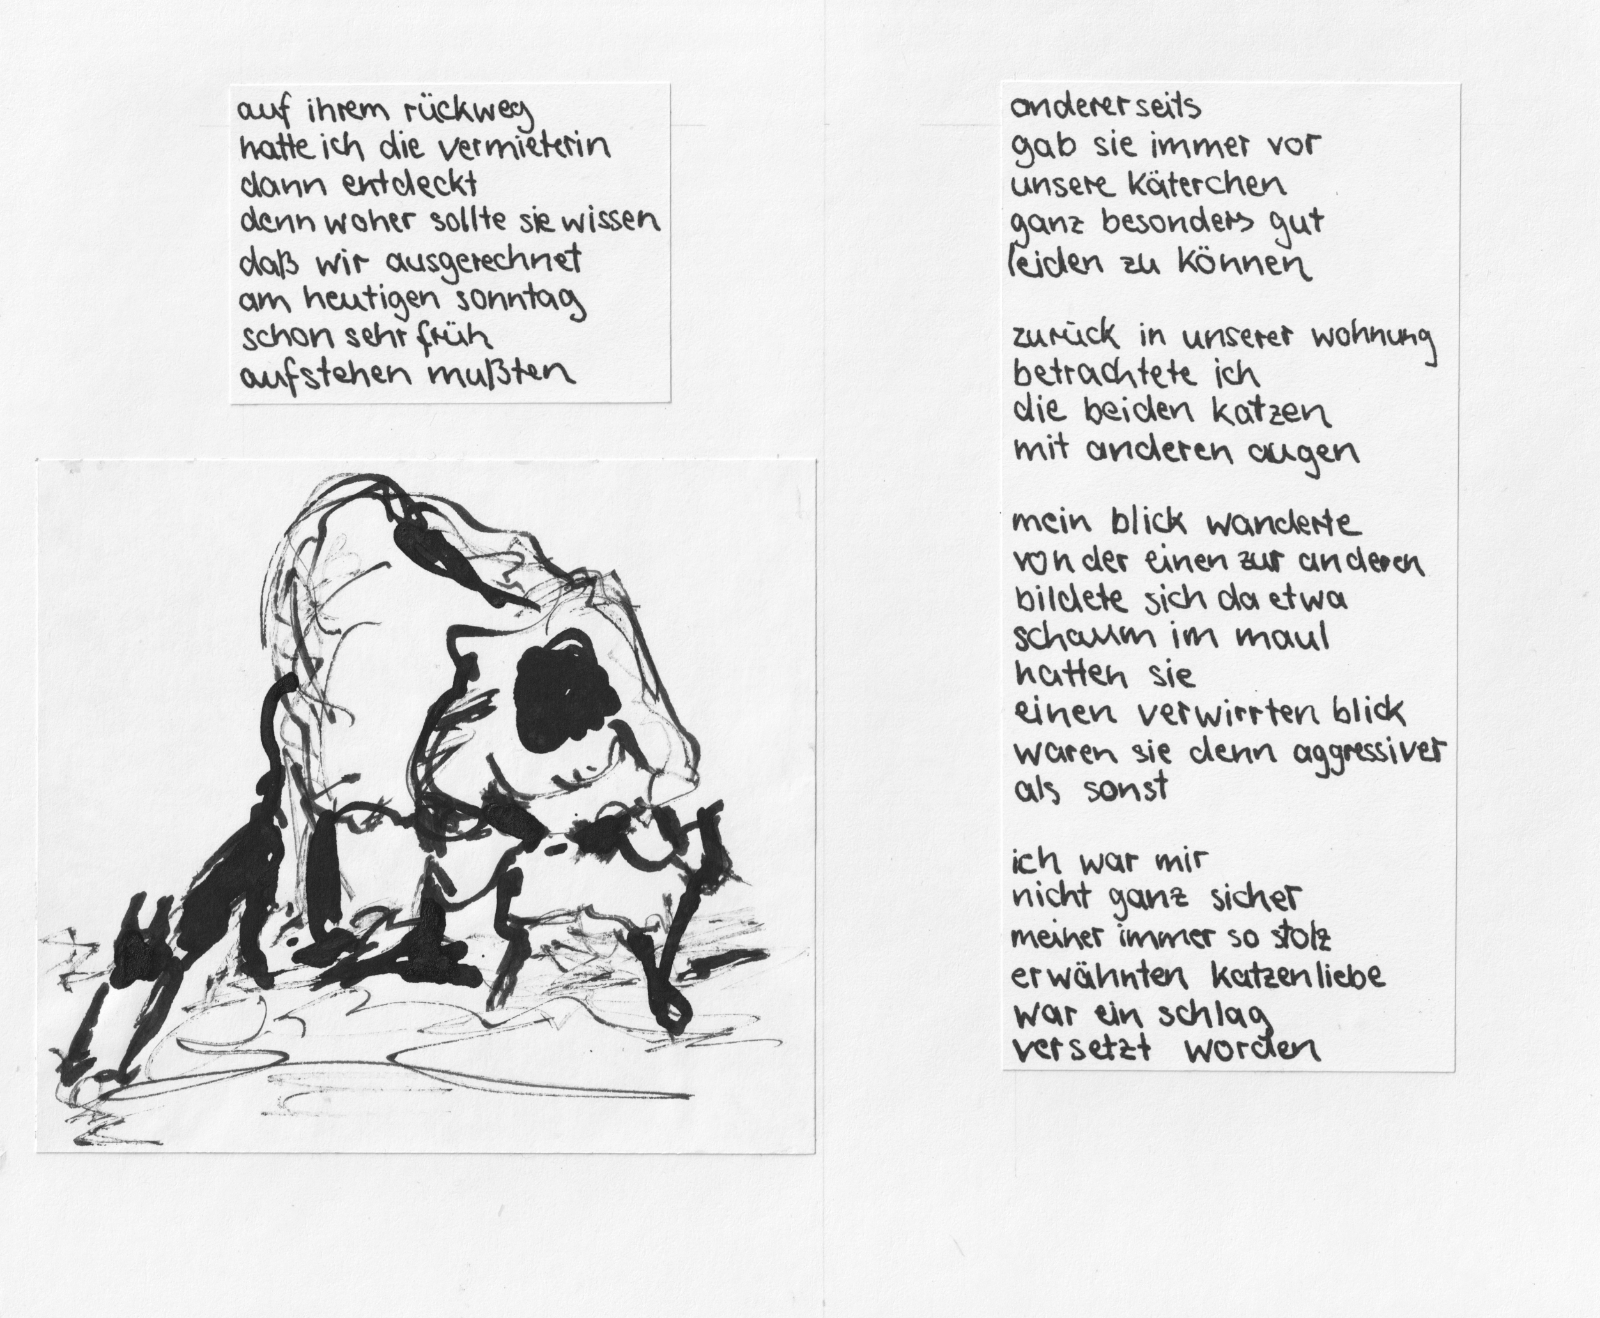 auf ihrem rückweg
hatte ich die vermieterin
dann entdeckt
denn woher sollte sie wissen
daß wir ausgerechnet
am heutigen sonntag
schon sehr früh
aufstehen mußten
andererseits
gab sie immer vor
unsere käterchen
ganz besonders gut
leiden zu können
zurück in unserer wohnung
betrachtete ich
die beiden katzen
mit anderen augen
mein blick wanderte
von der einen zur anderen
bildete sich da etwa
schaum im maul
hatten sie
einen verwirrten blick
waren sie denn aggressiver
als sonst
ich war mir
nicht ganz sicher
meiner immer so stolz
erwähnten katzenliebe
war ein schlag
versetzt worden